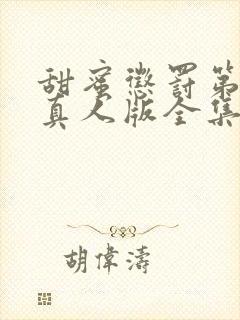 甜蜜懲罚第
真人版全集
胡偉濤